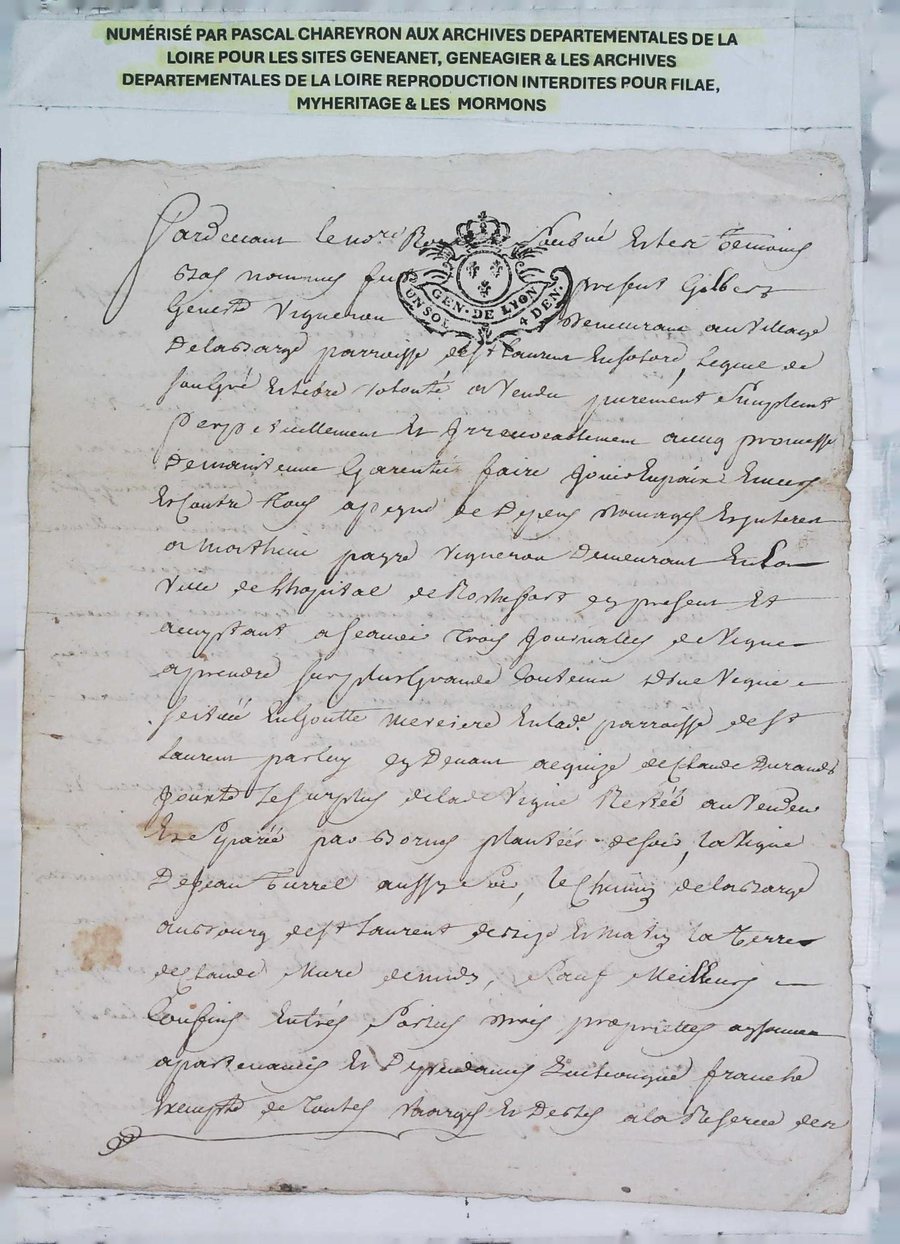 NUMÉRISÉ PAR PASCAL CHAREYRON AUX ARCHIVES DEPARTEMENTALES DE LA
LOIRE POUR LES SITES GENEANET, GENEAGIER & LES ARCHIVES
DEPARTEMENTALES DE LA LOIRE REPRODUCTION INTERDITES POUR FILAE,
MYHERITAGE & LES MORMONS
Pardevant le nore Soubné Et les Temoins
Bas nommes fu present Gilbert
GEN. DE LYON
UN SOL 4 DEN.
Vigneron Demeurant au village
Delabarge parroisse de St Laurent Ensolore, lequel de
songré Et libre volonté a Vendu purement simplemt
perpetuellement Et Irrevocablement avecq promesse
De maintenue Garentie faire Jouir Enpaix Envers
Et Contre Tous apeyne de Depens Domages Et jnterest
a Mathieu payre Vigneron Demeurant En la
Ville de Lhopital de Rochefort cy present Et
aceptant ascavoir Trois Journalles de Vigne
aprendre sur plus Grande Contenue Dune Vigne
scituée En Goutte Merciere En lade parroisse de St
Laurent par luy cy Devant acquize de Claude Durand
Joute le surplus de lade Vigne Restée au Vendeur
Et Separée par Bornes plantées de soir, la Vigne
De Jean Turrel aussy soir, le Chemin de la Barge
au Bourg de St Laurent de bize Et matin la Terre
de Claude Mure de midy, Sauf Meilleurs
Confins Entrés Sorties Drois proprietes aysances
apartenances Et Dependances quelconque franche
Exempte de Toutes Charges Et Dettes ala Reserve des